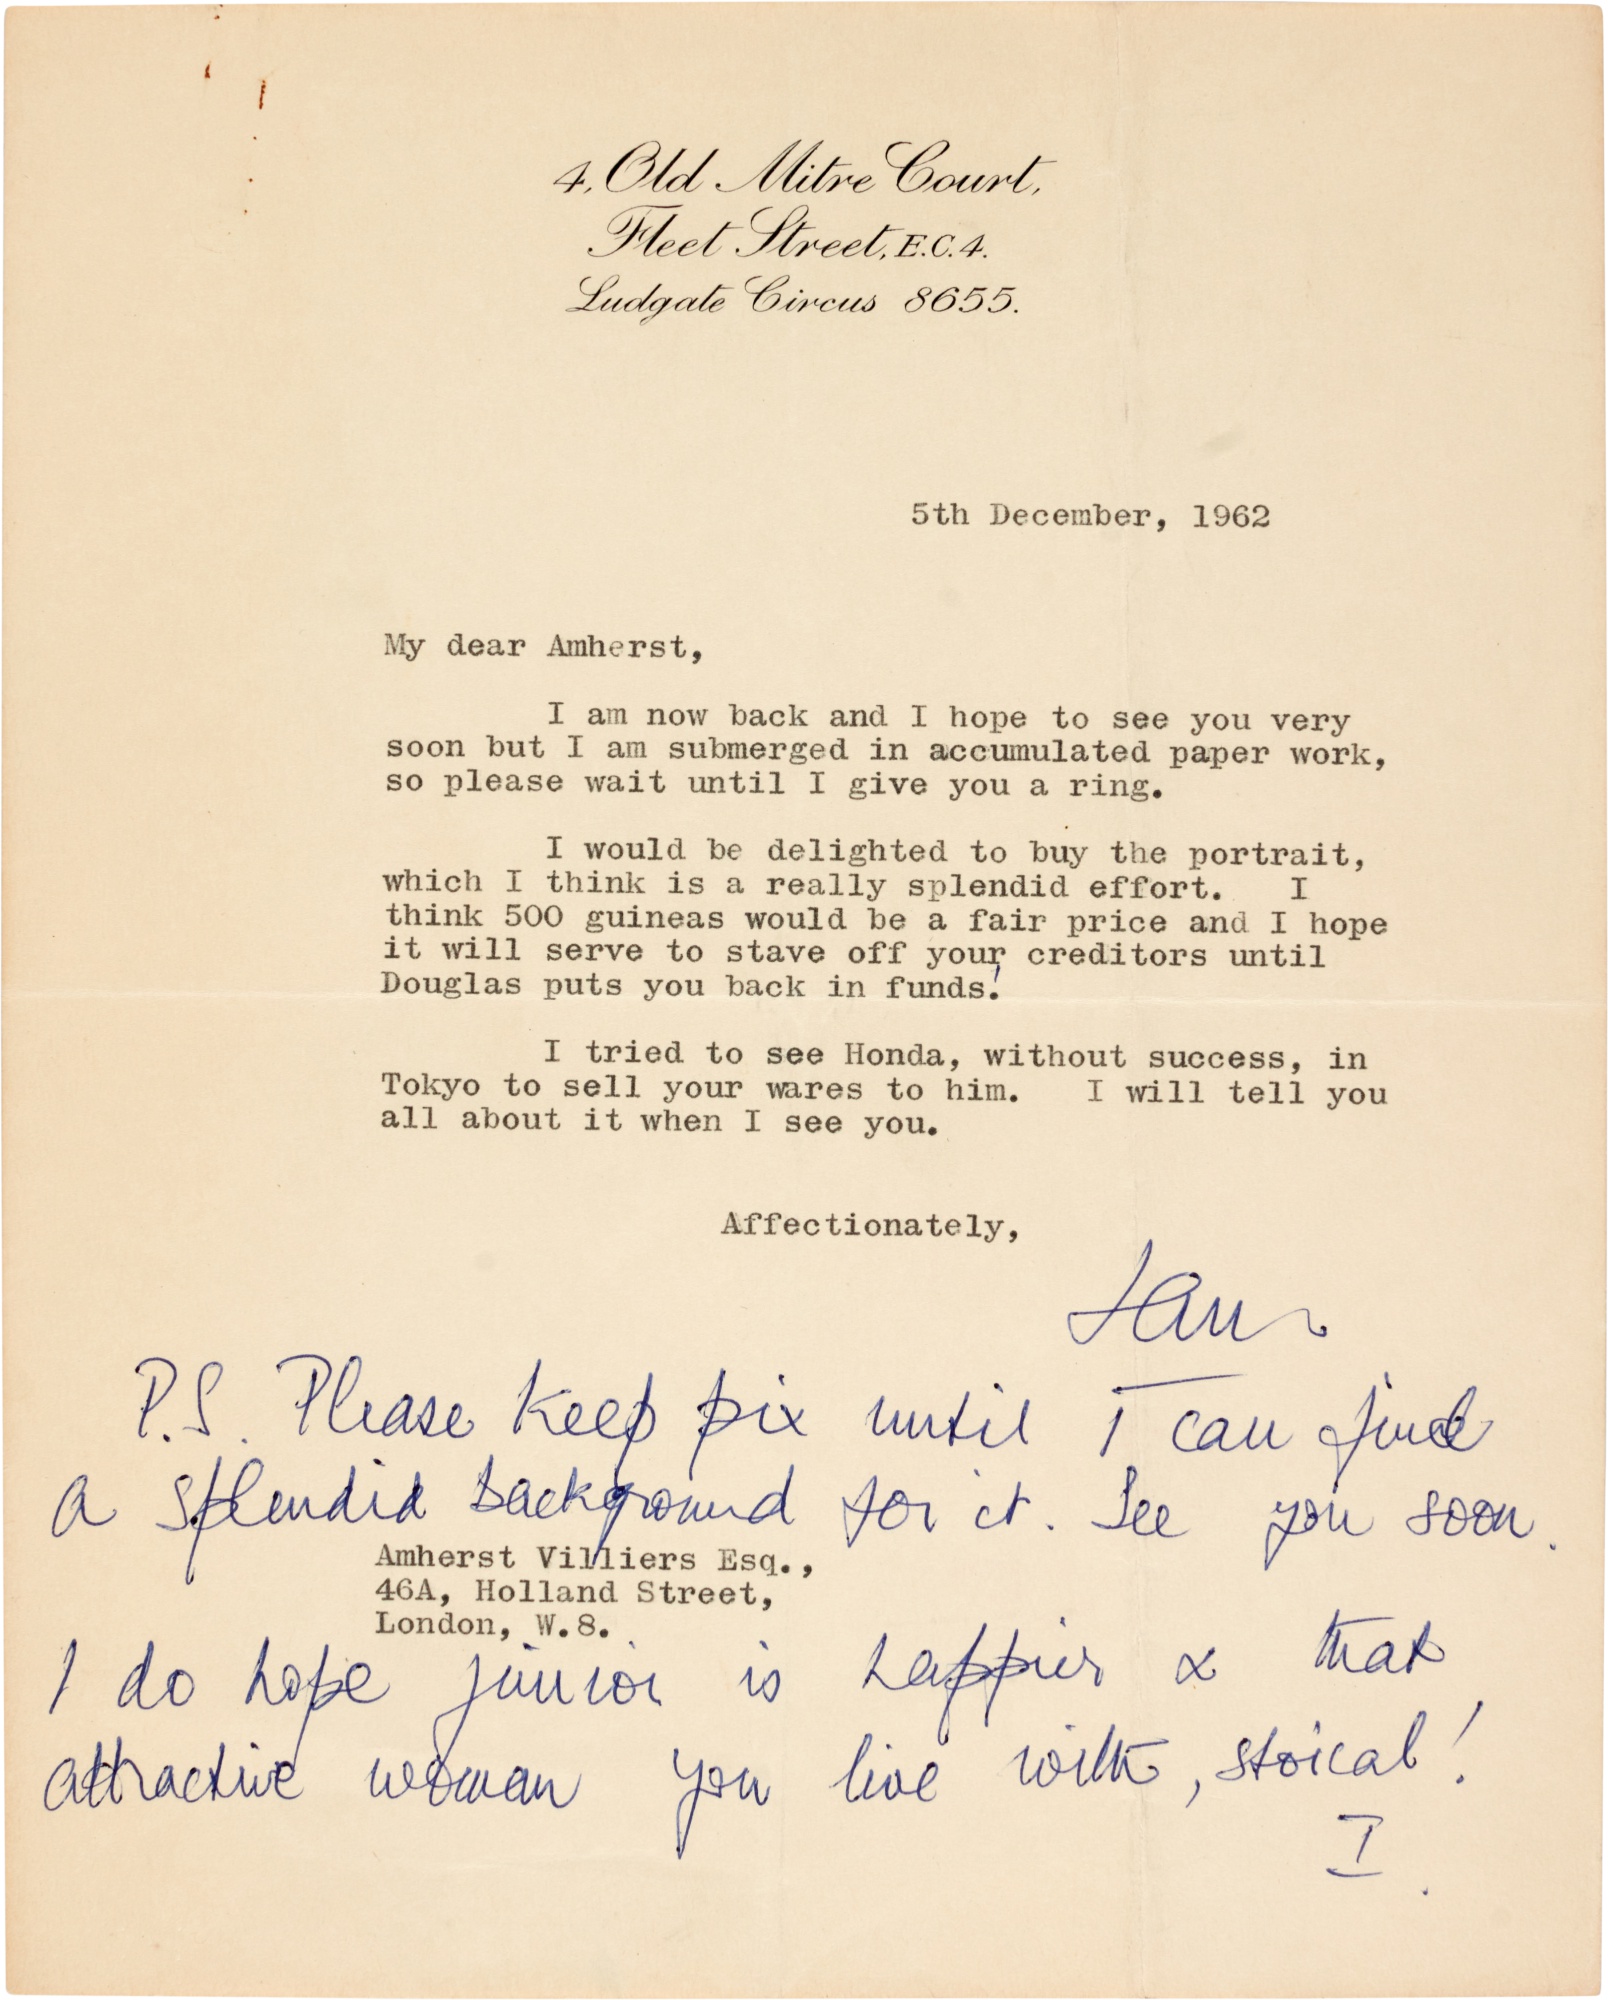 4, Old Mitre Court,
Fleet Street, E.C.4.
Ludgate Circus 8655.
5th December, 1962
My dear Amherst,
I am now back and I hope to see you very
soon but I am submerged in accumulated paper work,
so please wait until I give you a ring.
I would be delighted to buy the portrait,
which I think is a really splendid effort. I
think 500 guineas would be a fair price and I hope
it will serve to stave off your creditors until
Douglas puts you back in funds!
I tried to see Honda, without success, in
Tokyo to sell your wares to him. I will tell you
all about it when I see you.
Affectionately,
Ian
P.S. Please keep pix until I can find
a splendid background for it. See you soon.
Amherst Villiers Esq.,
46A, Holland Street,
London, W.8.
I do hope junior is happier & that
attractive woman you live with, stoical!
I.